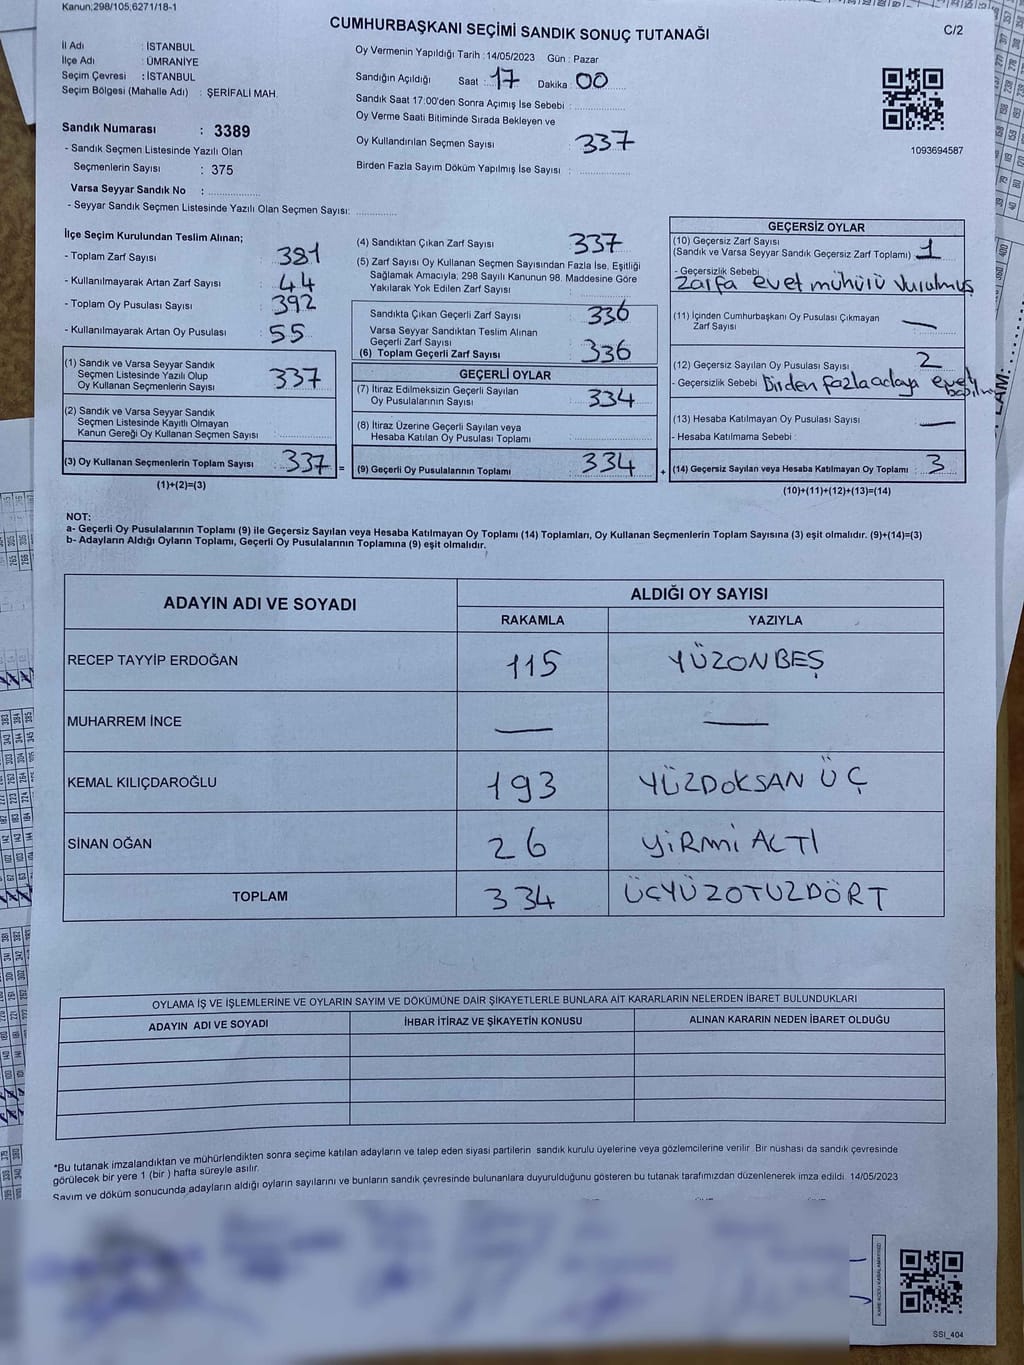 Kanun:298/105;6271/18-1
CUMHURBAŞKANI SEÇİMİ SANDIK SONUÇ TUTANAĞI
C/2
İl Adı : İSTANBUL
İlçe Adı : ÜMRANİYE
Seçim Çevresi : İSTANBUL
Seçim Bölgesi (Mahalle Adı) : ŞERİFALİ MAH.
Sandık Numarası : 3389
- Sandık Seçmen Listesinde Yazılı Olan
Seçmenlerin Sayısı : 375
Varsa Seyyar Sandık No :
- Seyyar Sandık Seçmen Listesinde Yazılı Olan Seçmen Sayısı:
Oy Vermenin Yapıldığı Tarih : 14/05/2023 Gün : Pazar
Sandığın Açıldığı Saat : 17 Dakika : 00
Sandık Saat 17:00'den Sonra Açımış İse Sebebi :
Oy Verme Saati Bitiminde Sırada Bekleyen ve
Oy Kullandırılan Seçmen Sayısı : 337
Birden Fazla Sayım Döküm Yapılmış İse Sayısı :
1093694587
İlçe Seçim Kurulundan Teslim Alınan;
- Toplam Zarf Sayısı : 381
- Kullanılmayarak Artan Zarf Sayısı : 44
- Toplam Oy Pusulası Sayısı : 392
- Kullanılmayarak Artan Oy Pusulası : 55
(1) Sandık ve Varsa Seyyar Sandık
Seçmen Listesinde Yazılı Olup
Oy Kullanan Seçmenlerin Sayısı : 337
(2) Sandık ve Varsa Seyyar Sandık
Seçmen Listesinde Kayıtlı Olmayan
Kanun Gereği Oy Kullanan Seçmen Sayısı :
(3) Oy Kullanan Seçmenlerin Toplam Sayısı : 337 =
(1)+(2)=(3)
(4) Sandıktan Çıkan Zarf Sayısı : 337
(5) Zarf Sayısı Oy Kullanan Seçmen Sayısından Fazla İse, Eşitliği
Sağlamak Amacıyla; 298 Sayılı Kanunun 98. Maddesine Göre
Yakılarak Yok Edilen Zarf Sayısı :
Sandıkta Çıkan Geçerli Zarf Sayısı : 336
Varsa Seyyar Sandıktan Teslim Alınan
Geçerli Zarf Sayısı :
(6) Toplam Geçerli Zarf Sayısı : 336
GEÇERLİ OYLAR
(7) İtiraz Edilmeksizin Geçerli Sayılan
Oy Pusulalarının Sayısı : 334
(8) İtiraz Üzerine Geçerli Sayılan veya
Hesaba Katılan Oy Pusulası Toplamı :
(9) Geçerli Oy Pusulalarının Toplamı : 334 +
GEÇERSİZ OYLAR
(10) Geçersiz Zarf Sayısı
(Sandık ve Varsa Seyyar Sandık Geçersiz Zarf Toplamı) : 1
- Geçersizlik Sebebi
Zarfa evet mühürü vurulmuş
(11) İçinden Cumhurbaşkanı Oy Pusulası Çıkmayan
Zarf Sayısı : —
(12) Geçersiz Sayılan Oy Pusulası Sayısı : 2
- Geçersizlik Sebebi Birden fazla adaya evet
(13) Hesaba Katılmayan Oy Pusulası Sayısı : —
- Hesaba Katılmama Sebebi :
(14) Geçersiz Sayılan veya Hesaba Katılmayan Oy Toplamı : 3
(10)+(11)+(12)+(13)=(14)
NOT:
a- Geçerli Oy Pusulalarının Toplamı (9) ile Geçersiz Sayılan veya Hesaba Katılmayan Oy Toplamı (14) Toplamları, Oy Kullanan Seçmenlerin Toplam Sayısına (3) eşit olmalıdır. (9)+(14)=(3)
b- Adayların Aldığı Oyların Toplamı, Geçerli Oy Pusulalarının Toplamına (9) eşit olmalıdır.
ADAYIN ADI VE SOYADI
ALDIĞI OY SAYISI
RAKAMLA YAZIYLA
RECEP TAYYİP ERDOĞAN 115 YÜZONBEŞ
MUHARREM İNCE — —
KEMAL KILIÇDAROĞLU 193 YÜZDOKSAN ÜÇ
SİNAN OĞAN 26 YİRMİ ALTI
TOPLAM 334 ÜÇYÜZOTUZDÖRT
OYLAMA İŞ VE İŞLEMLERİNE VE OYLARIN SAYIM VE DÖKÜMÜNE DAİR ŞİKAYETLERLE BUNLARA AİT KARARLARIN NELERDEN İBARET BULUNDUKLARI
ADAYIN ADI VE SOYADI İHBAR İTİRAZ VE ŞİKAYETİN KONUSU ALINAN KARARIN NEDEN İBARET OLDUĞU
*Bu tutanak imzalandıktan ve mühürlendikten sonra seçime katılan adayların ve talep eden siyasi partilerin sandık kurulu üyelerine veya gözlemcilerine verilir. Bir nüshası da sandık çevresinde
görülecek bir yere 1 (bir ) hafta süreyle asılır.
Sayım ve döküm sonucunda adayların aldığı oyların sayılarını ve bunların sandık çevresinde bulunanlara duyurulduğunu gösteren bu tutanak tarafımızdan düzenlenerek imza edildi. 14/05/2023
SSI_404